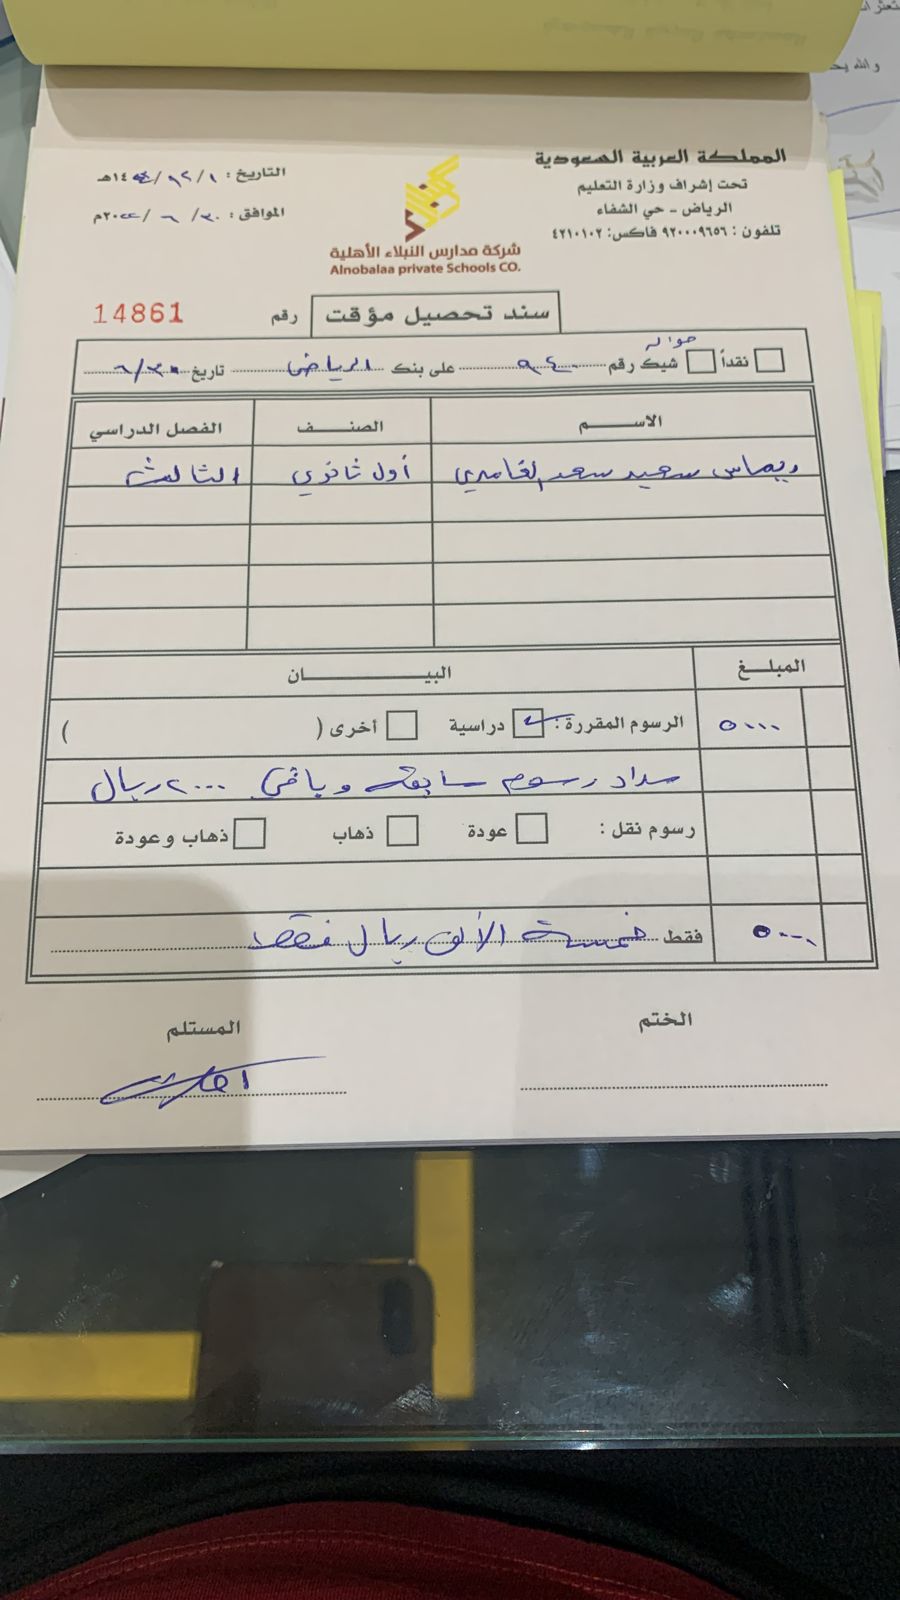 المملكة العربية السعودية
تحت إشراف وزارة التعليم
الرياض - حي الشفاء
تلفون : ٩٢٠٠٠٩٦٥٦ فاكس: ٤٢١٠١٠٢
شركة مدارس النبلاء الأهلية
Alnobalaa private Schools CO.
التاريخ : ١٤هـ
الموافق : ٣٠ / ٦ / ٢٠م
سند تحصيل مؤقت
رقم 14861
حواله
نقداً شيك رقم ٩٤٠ على بنك الرياض تاريخ ٦/٣٠
الاســـم الصنــف الفصل الدراسي
ريماس سعيد سعد الغامدي أول ثانوي الثالث
المبلــغ البيـــــــان
٥٠٠٠ الرسوم المقررة : دراسية أخرى ( )
سداد رسوم سابقة وباقي ٢٠٠٠ ريال
رسوم نقل : عودة ذهاب ذهاب وعودة
٥٠٠٠ فقط خمسة الألف ريال فقط
الختم المستلم
والله يح